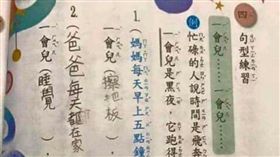 四、句型練習
一會兒……
一會兒……
例
忙碌的人說時間是飛奔
一會兒是黑夜，它跑得
1. 媽媽每天早上五點鐘
一會兒（擦地板
2.（爸爸每天都在家
一會兒（睡覺）